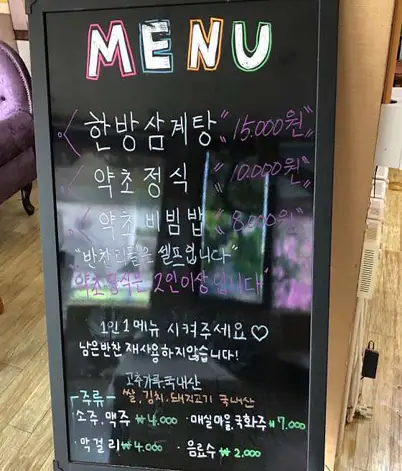 MENU
한방삼계탕 "15.000원"
약초정식 "10.000원"
약초비빔밥 "8.000원"
"반찬리필은 셀프입니다"
약초정식은 2인이상입니다
1인 1메뉴 시켜주세요♡
남은반찬 재사용하지않습니다!
고추가루.국내산
쌀, 김치, 돼지고기 국내산
주류
소주, 맥주 ₩4.000 · 매실마을, 국화주 ₩7.000
· 막걸리 ₩4.000 · 음료수 ₩2.000